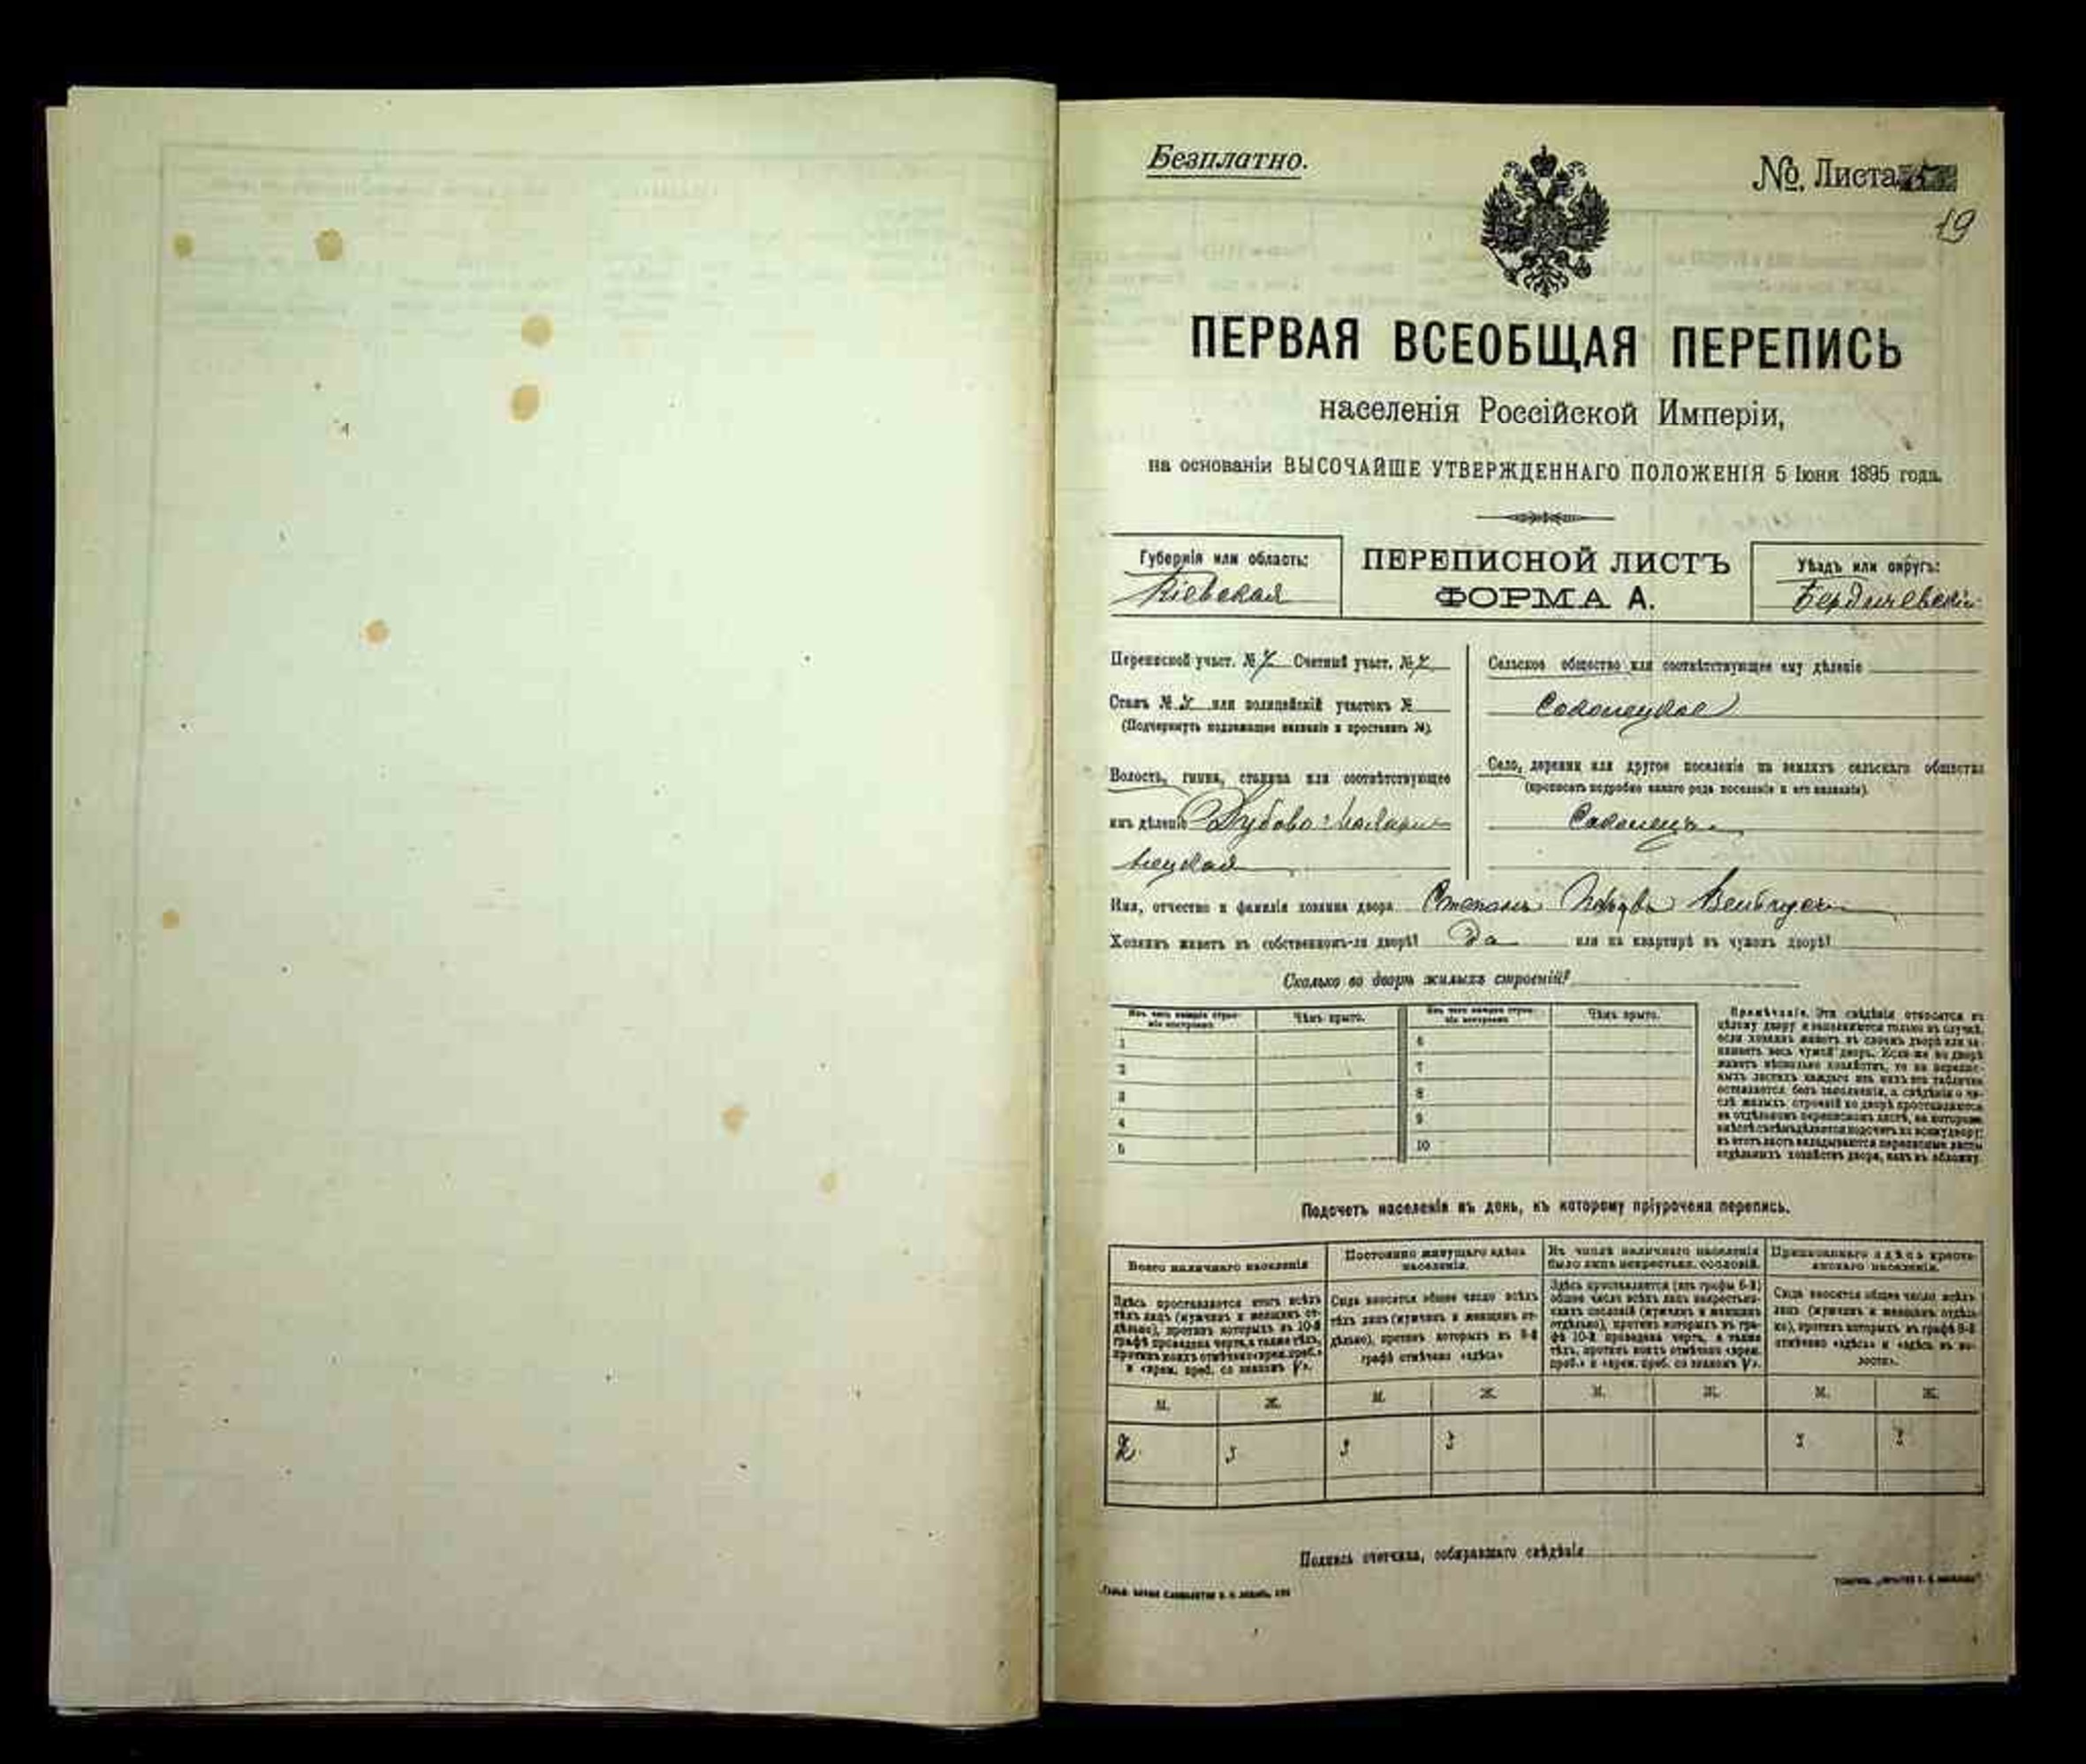 Безплатно.
№. Листа
19
ПЕРВАЯ ВСЕОБЩАЯ ПЕРЕПИСЬ
населенія Россійской Имперіи,
на основаніи ВЫСОЧАЙШЕ УТВЕРЖДЕННАГО ПОЛОЖЕНІЯ 5 Іюня 1895 года.
Губернія или область:
Кіевская
ПЕРЕПИСНОЙ ЛИСТЪ
ФОРМА А.
Уѣздъ или округъ:
Бердичевскій
Переписной участ. № Счетный участ. №
Станъ № или полицейскій участокъ №
(Подчеркнуть подлежащее названіе и проставить №).
Волость, гмина, станица или соотвѣтствующее
имъ дѣленіе Дубово-
Сельское общество или соотвѣтствующее ему дѣленіе
Соколецкое
Село, деревня или другое поселеніе на земляхъ сельскаго общества
(прописать подробно какого рода поселеніе и его названіе).
Соколець
Имя, отчество и фамилія хозяина двора Степанъ
Хозяинъ живетъ въ собственномъ-ли дворѣ? Да или на квартирѣ въ чужомъ дворѣ?
Сколько во дворѣ жилыхъ строеній?
Изъ чего каждое строе-
ніе построено. Чѣмъ крыто. Изъ чего каждое строе-
ніе построено. Чѣмъ крыто.
1 6
2 7
3 8
4 9
5 10
Примѣчаніе. Эти свѣдѣнія относятся къ
цѣлому двору и заполняются только въ случаѣ,
если хозяинъ живетъ въ своемъ дворѣ или за-
нимаетъ весь чужой дворъ. Если же во дворѣ
живетъ нѣсколько хозяйствъ, то на перепис-
ныхъ листахъ каждаго изъ нихъ эта табличка
оставляется безъ заполненія, а свѣдѣнія о чи-
слѣ жилыхъ строеній во дворѣ проставляются
на отдѣльномъ переписномъ листѣ, на которомъ
дѣлается подсчетъ по всему двору;
въ этотъ листъ вкладываются переписные листы
отдѣльныхъ хозяйствъ двора, какъ въ обложку.
Подсчетъ населенія въ день, къ которому пріурочена перепись.
Всего наличнаго населенія
Здѣсь проставляется итогъ всѣхъ
тѣхъ лицъ (мужчинъ и женщинъ от-
дѣльно), противъ которыхъ въ 10-й
графѣ проведена черта, а также тѣхъ,
противъ коихъ отмѣчено «врем. преб.»
и «врем. преб. со знакомъ V».
Постоянно живущаго здѣсь
населенія.
Сюда вносится общее число всѣхъ
тѣхъ лицъ (мужчинъ и женщинъ от-
дѣльно), противъ которыхъ въ 9-й
графѣ отмѣчено «здѣсь»
Въ числѣ наличнаго населенія
было лицъ некрестьян. сословій.
Здѣсь проставляется (изъ графы 6-й)
общее число всѣхъ лицъ некрестьян-
скихъ сословій (мужчинъ и женщинъ
отдѣльно), противъ которыхъ въ гра-
фѣ 10-й проведена черта, а также
тѣхъ, противъ коихъ отмѣчено «врем.
преб.» и «врем. преб. со знакомъ V».
Приписаннаго здѣсь кресть-
янскаго населенія.
Сюда вносится общее число всѣхъ
лицъ (мужчинъ и женщинъ отдѣль-
но), противъ которыхъ въ графѣ 8-й
отмѣчено «здѣсь» и «здѣсь въ во-
лости».
М. Ж. М. Ж. М. Ж. М. Ж.
2 3 3 3 3 3
Подпись счетчика, собиравшаго свѣдѣнія